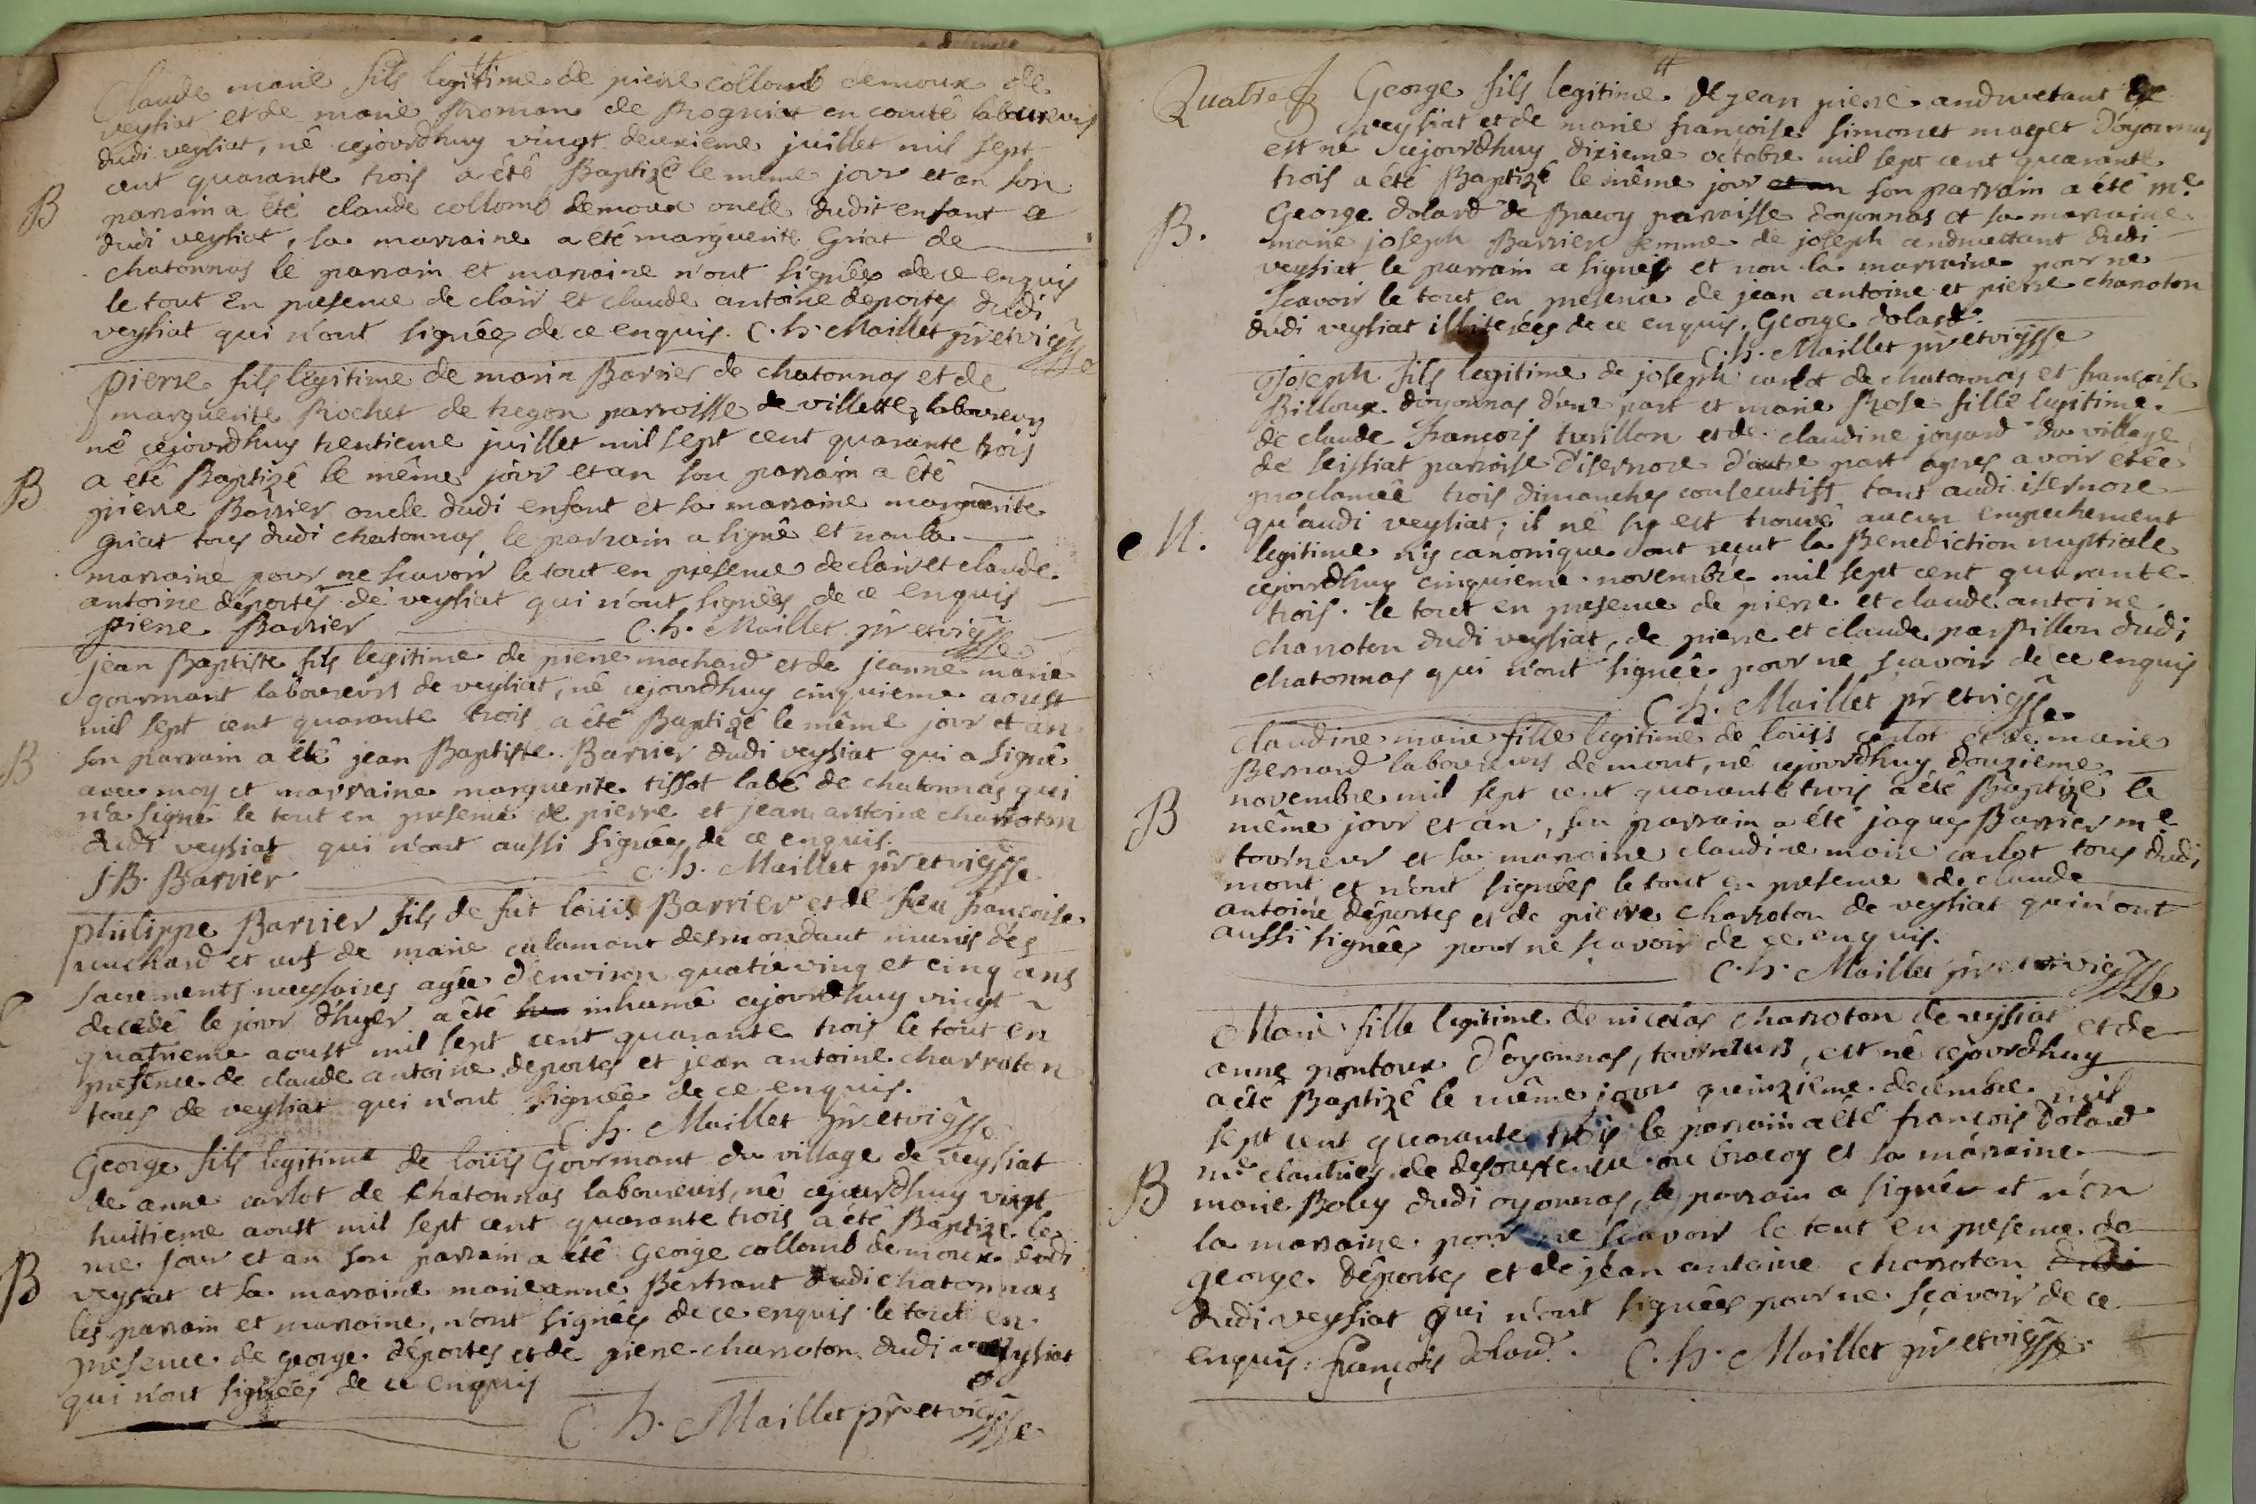 Claude marie fils legitime de pierre collomb demoux de
veysiat et de marie Roman de Rogniat en comté laboureurs
dudi veysiat, né cejourdhuy vingt deuxieme juillet mil sept
cent quarante trois a été Baptizé le meme jour et an son
B parrain a été claude collomb demoux oncle dudit enfant e
dudi veysiat, sa marraine a eté marguerite Griat de
chatonnas le parrain et marraine n'ont signées de ce enquis
le tout En presence de clair et claude antoine deportes dudi
veysiat qui n'ont signées de ce enquis. C. h. Maillet prr et vigsse
pierre fils legitime de marin Barrier de chatonnas et de
marguerite Rochet de tregon parroisse de villette, laboureurs
né cejourdhuy trentieme juillet mil sept cent quarante trois
a été Baptizé le même jour et an son parrain a été
B pierre Barrier oncle dudi enfant et sa marraine marguerite
griat tous dudi chatonnas le parrain a signé et non la
marraine pour ne scavoir le tout en presence de clair et claude
antoine déportes de veysiat qui n'ont signées de ce enquis
pierre Barrier C. h. Maillet prr et vigsse
jean Baptiste fils legitime de pierre mochard et de jeanne marie
gourmant laboureurs de veysiat, né cejourdhuy cinquieme aoust
mil sept cent quarante trois a été Baptizé le même jour et an
B son parrain a été jean Baptiste Barrier dudi veysiat qui a signé
avec moy et marraine marguerite tissot labé de chatonnas qui
n'a signé le tout en presence de pierre et jean antoine charroton
dudi veysiat qui n'ont aussi signées de ce enquis.
J B. Barrier C. h. Maillet prr et vigsse
philippe Barrier fils de fut loüis Barrier et de feu françoise
muchard et veuf de marie calamant desmondant munis des
sacrements necessaires agée d'environ quatre ving et cinq ans
decedé le jour d'hyer a été inhumé cejourdhuy vingt
quatrieme aoust mil sept cent quarante trois le tout en
presence de claude antoine deportes et jean antoine charroton
tous de veysiat qui n'ont signée de ce enquis.
C. h. Maillet prr et vigsse
George fils legitime de loüis Gourmant du village de veysiat
de anne carlot de Chatonnas laboureurs, né cejourdhuy vingt
huitieme aoust mil sept cent quarante trois a été Baptize le
me jour et an son parrain a été George collomb demoux dudi
B veysiat et sa marraine marieanne Bertrant dudi chatonnas
les parrain et marraine, n'ont signées de ce enquis le tout en
presence de george déportes et de pierre charroton dudi veysiat
qui n'ont signées de ce enquis
C. h. Maillet prr et vigsse
Quatre George fils legitime de jean pierre andruetant de
veysiat et de marie françoise simonet maget d'oyonnas
est né cejourdhuy dixieme octobre mil sept cent quarante
trois a été Baptizé le même jour et an son parrain a été me
B. George dolard de Bracoy parroisse doyonnas et sa marraine
marie joseph Barrier femme de joseph andruettant dudi
veysiat le parrain a signés et non la marraine pour ne
scavoir le tout en presence de jean antoine et pierre charroton
dudi veysiat illiterées de ce enquis. George dolard.
C. h. Maillet prr et vigsse
joseph fils legitime de joseph carlot de chatonnas et françoise
Billoux d'oyonnas d'une part et marie Rose fille legitime
de claude françois turillon et de claudine joyard du village
de seissiat parroise d'isernore d'autre part apres avoir etée
proclamée trois dimanches consecutifs tant audi isernore
N. qu'audi veysiat, il né sy est trouvé aucun empechement
legitime ny canonique ont reçut la Benediction nuptiale
cejourdhuy cinquieme novembre mil sept cent quarante
trois. le tout en presence de pierre et claude antoine
charroton dudi veysiat, de pierre et claude parpillon dudi
chatonnas qui n'ont signée pour ne scavoir de ce enquis
C. h. Maillet prr et vigsse
Claudine marie fille legitime de loüis carlot et de marie
Bernard laboureurs de mont, né cejourdhuy douzieme
novembre mil sept cent quarante trois a été Baptizé le
B même jour et an, son parrain a été jaques Barrier me
tourneur et sa marraine claudine marie carlot tous dudi
mont et n'ont signées le tout en presence de claude
antoine déportes et de pierre charroton de veysiat qui n'ont
aussi signées pour ne scavoir de ce enquis.
C. h. Maillet prr et vigsse
Marie fille legitime de nicolas charroton de veysiat et de
anne pontoux d'oyonnas, tourneurs, est né cejourdhuy
a été Baptizé le même jour quinzieme decembre mil
sept cent quarante trois le parrain a été françois Dolard
me de Bracoy et sa marraine
B marie Boley dudi oyonnas, le parrain a signér et n'en
la marraine pour ne scavoir le tout en presence de
george déportes et de jean antoine charroton dudi
dudi veysiat qui n'ont signées pour ne sçavoir de ce
enquis. françois dolard. C. h. Maillet prr et vigsse